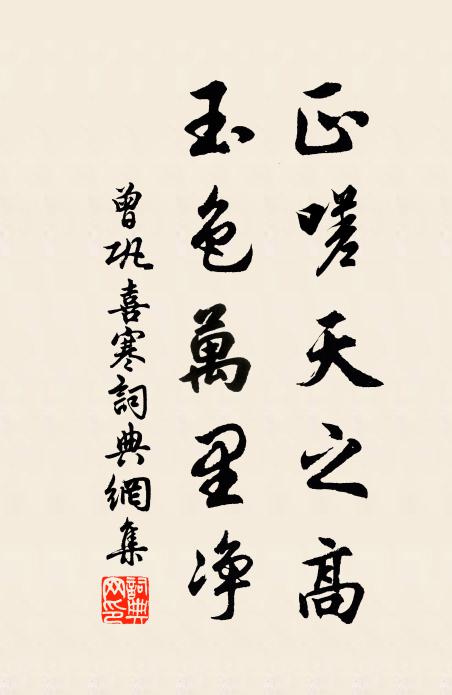 正嗟天之高
玉色萬里净
曾巩喜寒詞典網集
詞典網印